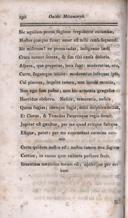 198 Ovidii Metamorph.
Sic aquilam penna fugiunt trepidante columbæ,
Hostes quæque suos: amor est mihi causa sequendi.
Me miserum! ne prona cadas, indignave lædi
Crura notent sentes, & sim tibi causa doloris.
Aspera, qua properas, loca sunt: moderatius, oro,
Curre, fugamque inhibe: moderatius insequar ipse.
Cui placeas, inquire tamen. non incola montis,
Non ego sum pastor, non hic armenta gregesve
Horridus observo. Nescis, temeraria, nescis
Quem fugias; ideoque fugis. mihi Delphica tellus,
Et Claros, & Tenedos Pataræaque regia servit.
Jupiter est genitor. per me quod eritque fuitque
Estque, patet: per me concordant carmina nervis.
Certa quidem nostra est: nostra tamen una sagitta
Certior, in vacuo quæ vulnera pectore fecit.
Inventum medicina meum est; opiferque per orbem